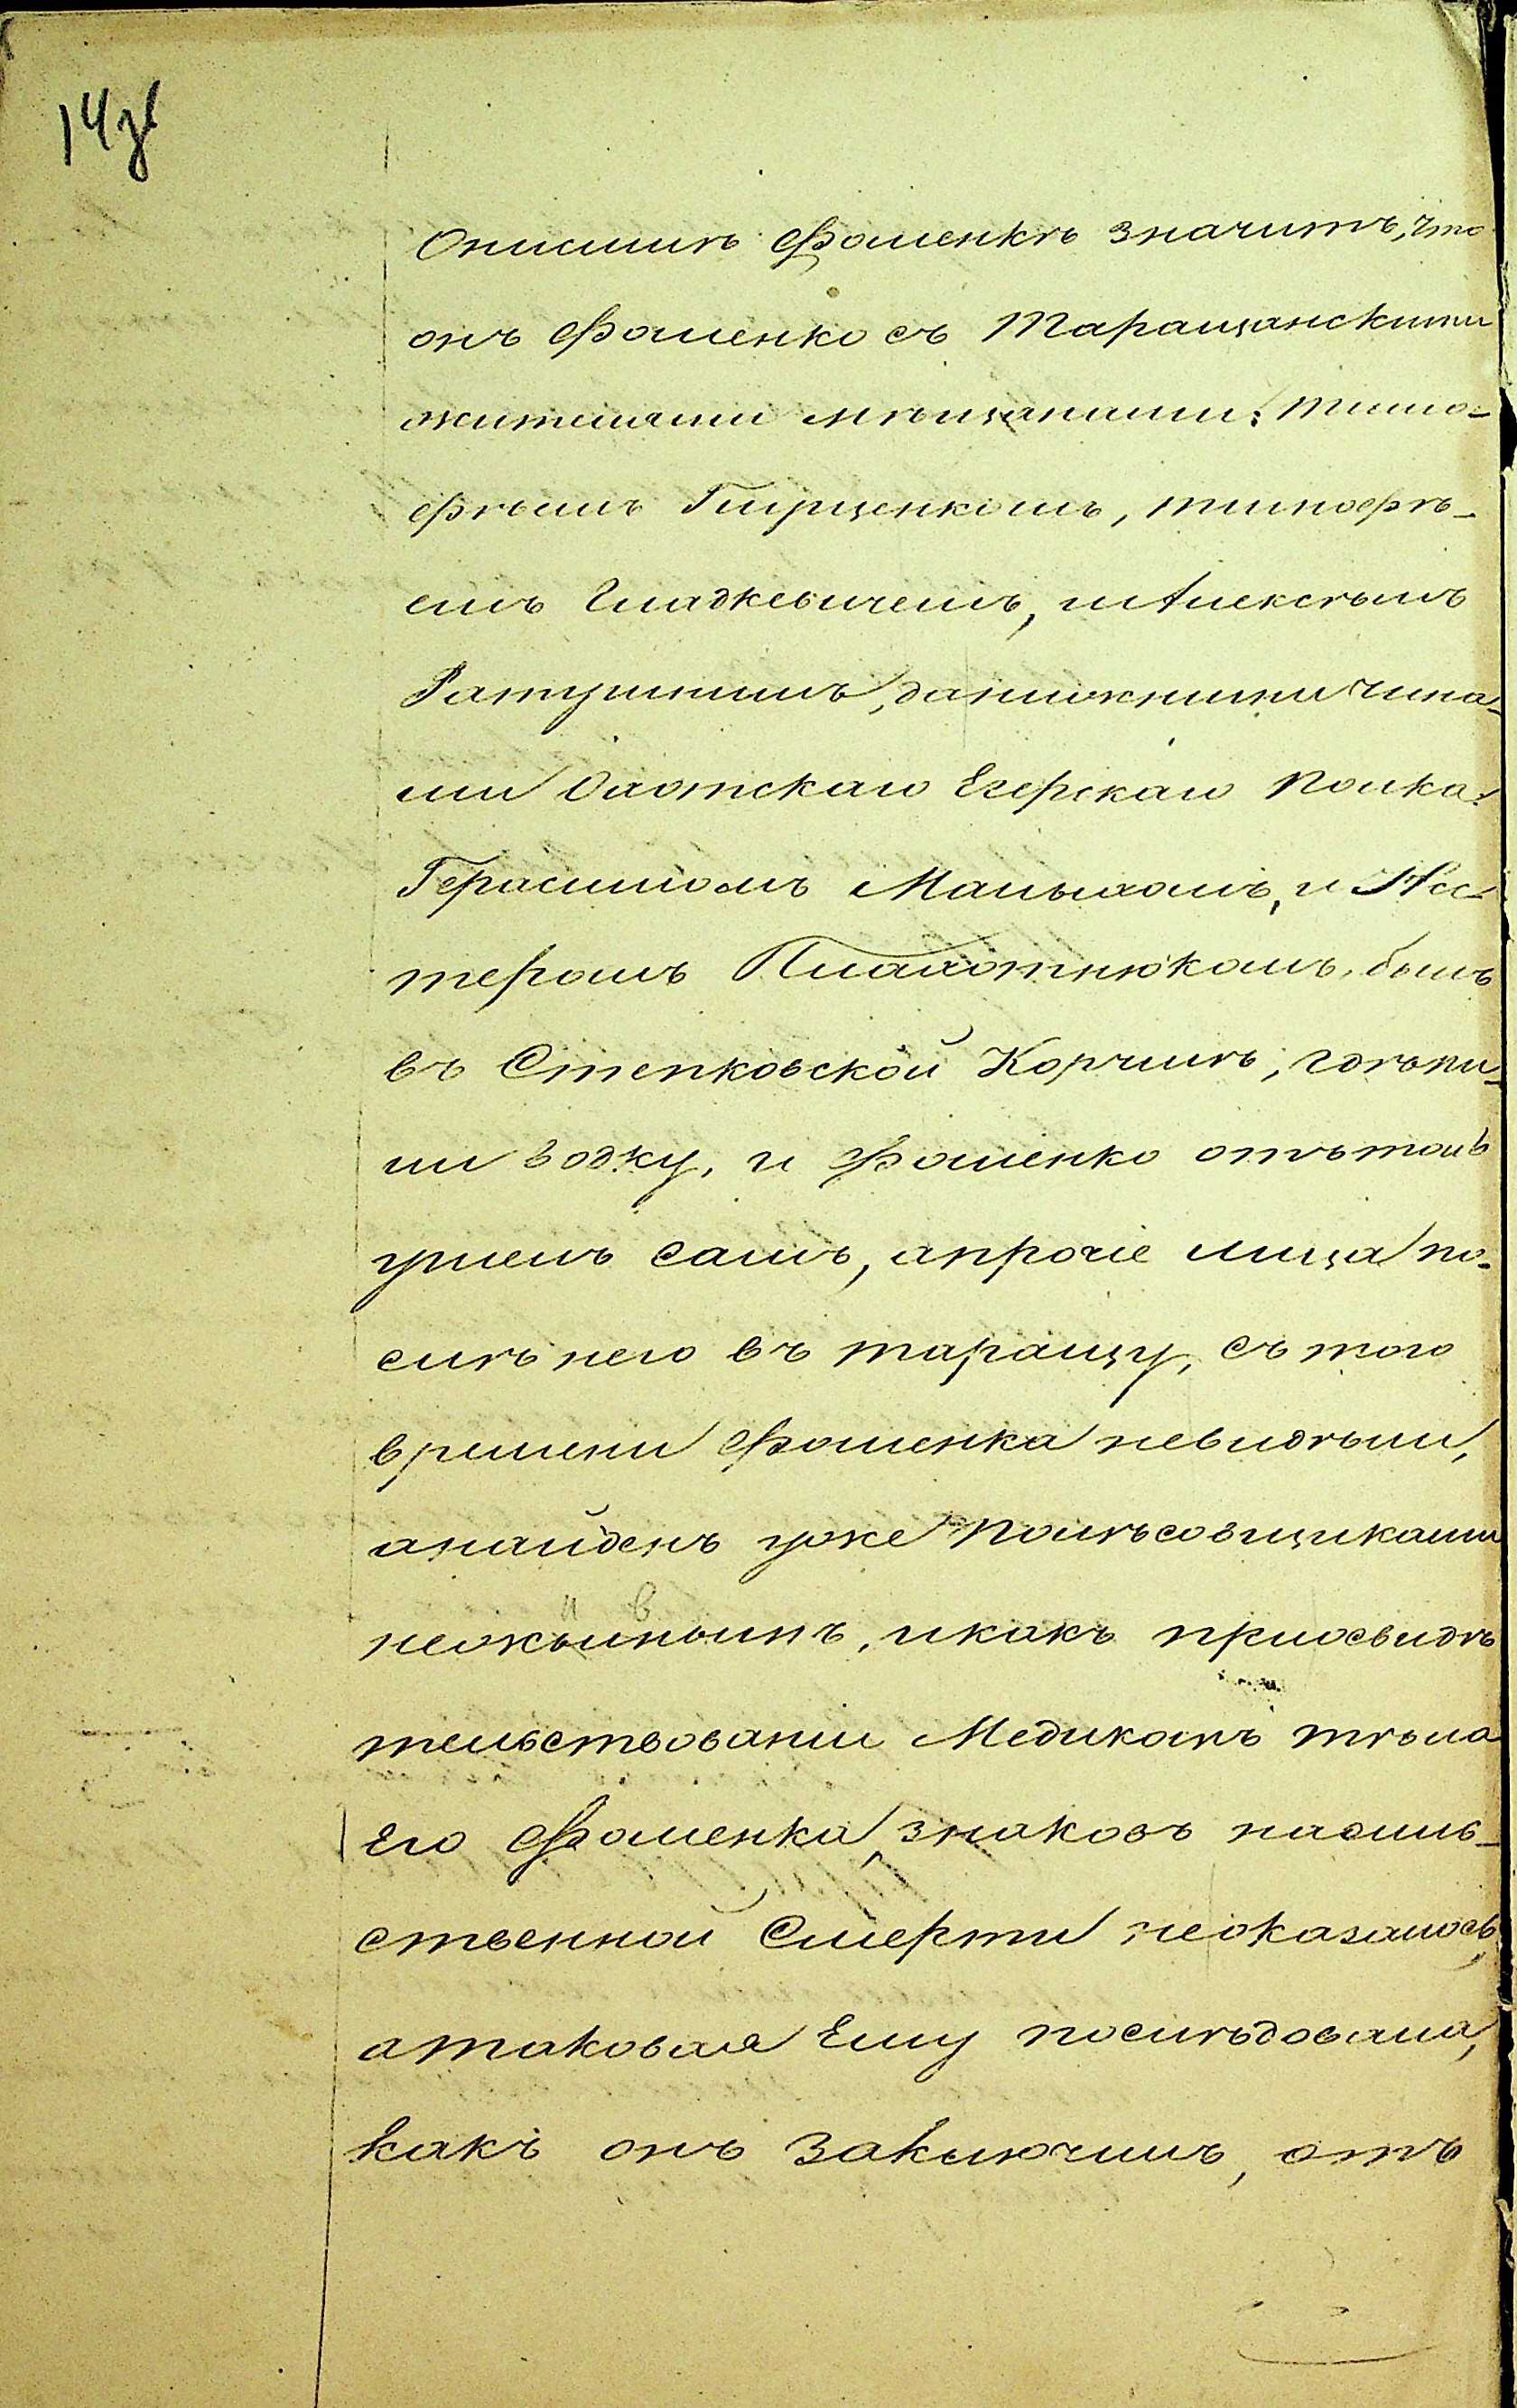 14 зв
Онисимѣ Фоменкѣ значитъ, что
онъ Фоменко съ Таращанскими
жителями мѣщанами: Тимо-
фѣемъ Гирценкомъ, Тимофѣ-
емъ Гладкевичемъ, и Алексѣемъ
Ратушнимъ, да нижними чина-
ми Охотскаго Егерскаго полка:
Герасимомъ Мальхомъ, и Нес-
теромъ Плахотнюкомъ, былъ
въ Степковской Корчмѣ, гдѣ пи-
ли водку, и Фоменко отъ толь
ушелъ самъ, а прочіе лица по-
слѣ него въ Таращу, съ того
времени Фоменка невидѣли,
а найденъ уже полѣсовщиками
неживымъ, и какъ приосвидѣ
тельствованіи Медикомъ тѣла
Его Фоменка, знаковъ насиль-
ственной Смерти неоказалось,
а таковая Ему послѣдовала,
какъ онъ заключилъ, отъ